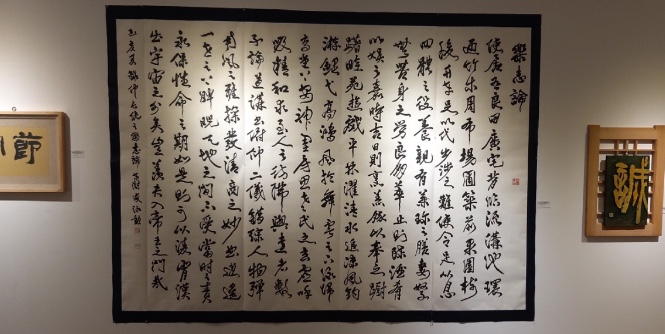 樂志論
使居有良田廣宅背山臨流溝池環
匝竹木周布場圃築前果園樹
後舟車足以代步涉之難使令足以息
四體之役養親有兼珍之膳妻孥
無苦身之勞良朋萃止則陳酒肴
以娛之嘉時吉日則烹羔豚以奉之躕
躇畦苑遊戲平林濯清水追涼風釣
游鯉弋高鴻風於舞雩之下詠歸
高堂之上安神閨房思老氏之玄虛呼
吸精和求至人之彷彿與達者數
子論道講書俯仰二儀錯綜人物彈
南風之雅操發清商之妙曲逍遙
一世之上睥睨天地之間不受當時之責
永保性命之期如是則可以凌霄漢
出宇宙之外矣豈羨夫入帝王之門哉
仲長統之樂志論
節
誠